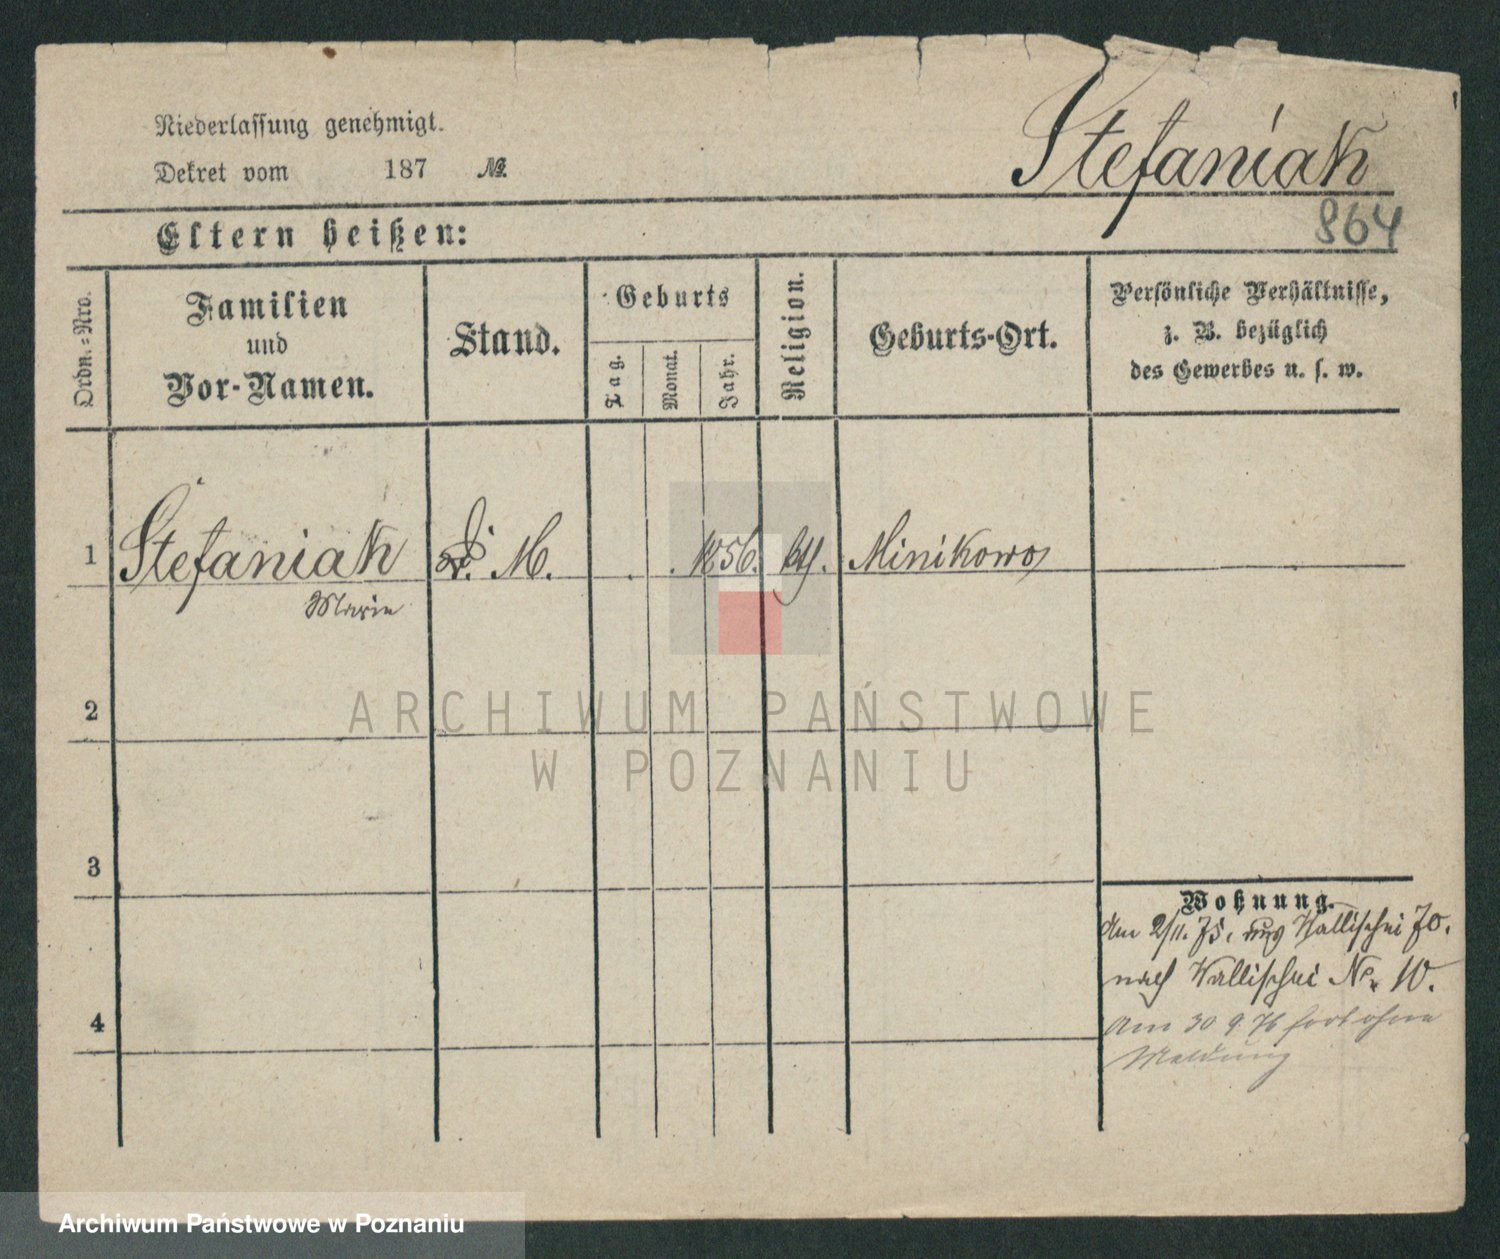 Niederlassung genehmigt.
Dekret vom 187 №
Stefaniak
864
Eltern heißen:
Ordn.-Nro.
Familien
und
Vor-Namen.
Stand.
Geburts
Tag.
Monat.
Jahr.
Religion.
Geburts-Ort.
Persönliche Verhältnisse,
z. B. bezüglich
des Gewerbes u. s. w.
1 Stefaniak D. M. 1856. kth. Minikowo
Marie
2
3
4
Wohnung.
Am 2/11. 75. aus Wallischei 70.
nach Wallischei No. 10.
Am 30 9 76 fort ohne
Meldung
ARCHIWUM PAŃSTWOWE
W POZNANIU
Archiwum Państwowe w Poznaniu